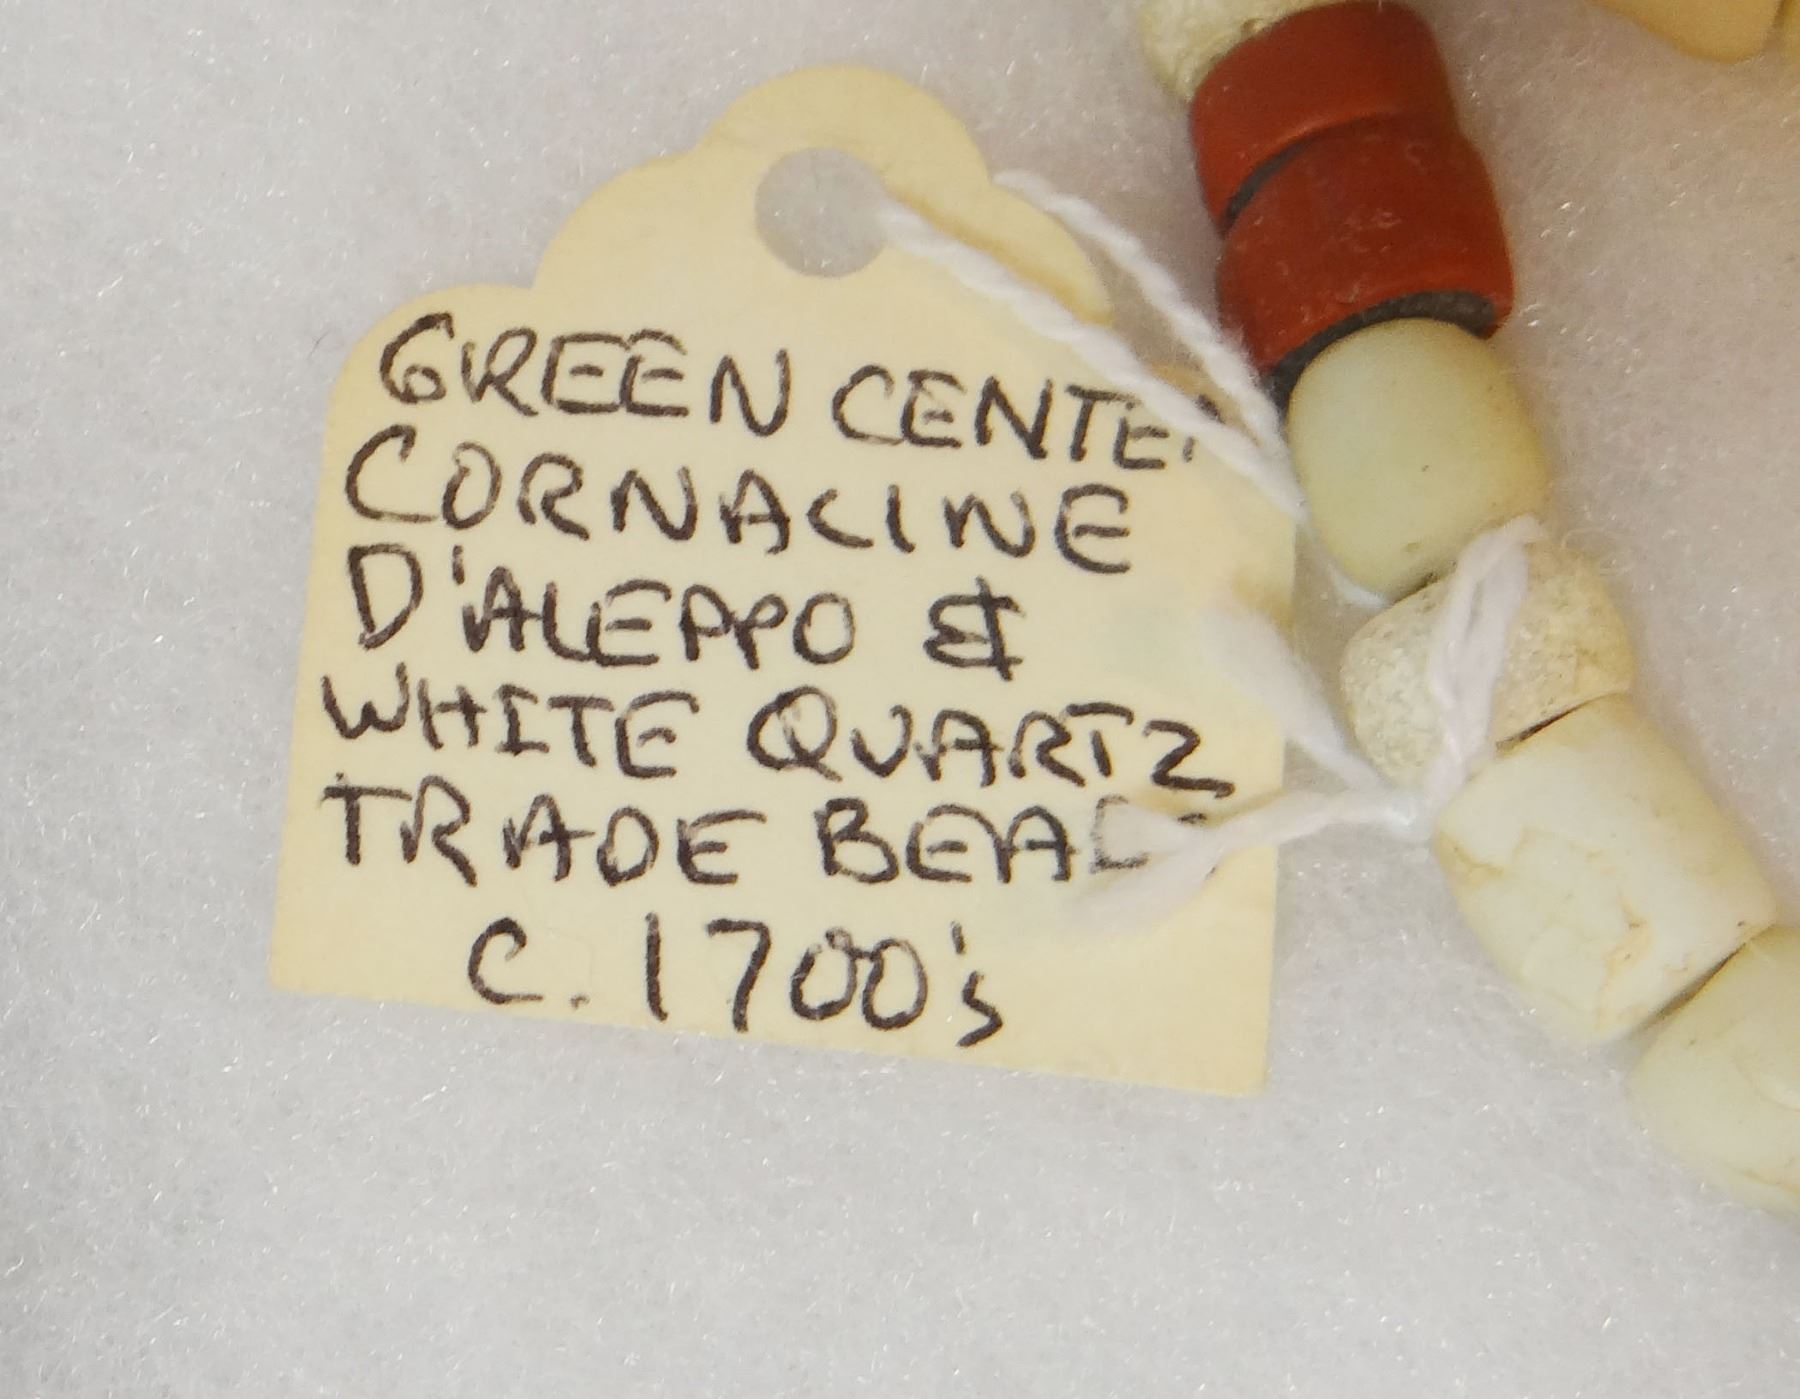 GREEN CENTER
CORNALINE
D'ALEPPO &
WHITE QUARTZ
TRADE BEADS
C. 1700's